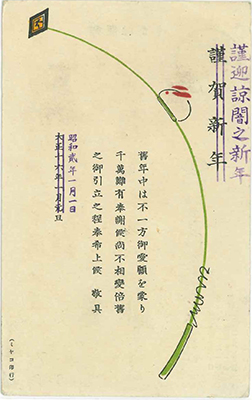 謹迎諒闇之新年
謹賀新年
舊年中は不一方御愛顧を蒙り
千萬難有奉謝候尚不相變倍舊
之御引立之程奉希上候 敬具
昭和貳年一月一日
大正十六年一月
(ミヤコ印行)